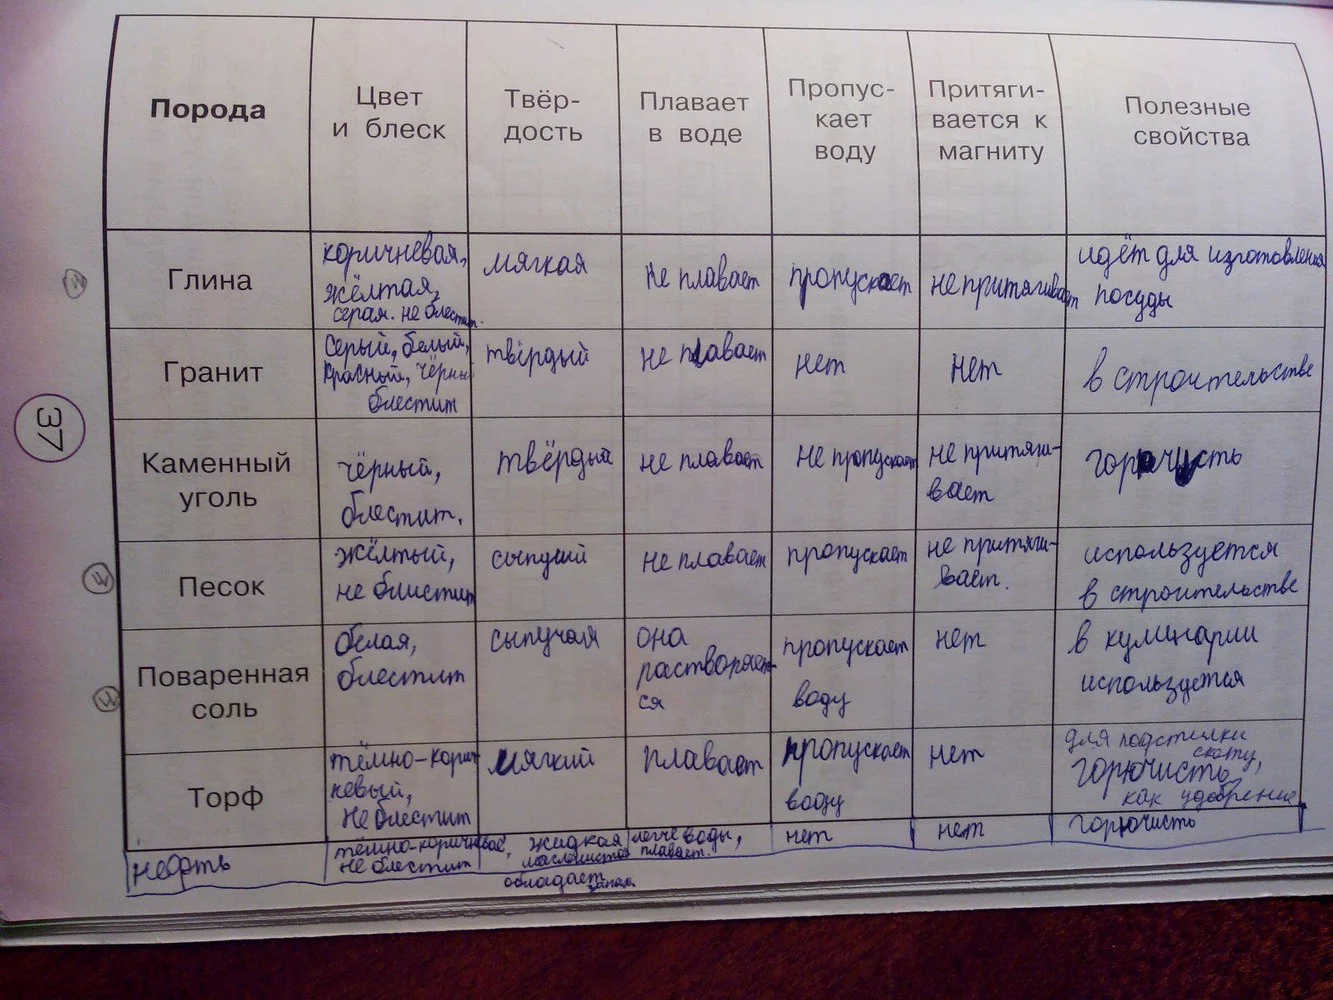 Порода
Цвет
и блеск
Твёр-
дость
Плавает
в воде
Пропус-
кает
воду
Притяги-
вается к
магниту
Полезные
свойства
Глина
коричневая,
жёлтая,
серая. не блестит.
мягкая
не плавает
пропускает
не притягивает
идёт для изготовления
посуды
Гранит
серый, белый,
красный, чёрный
блестит
твёрдый
не плавает
нет
нет
в строительстве
Каменный
уголь
чёрный,
блестит.
твёрдый
не плавает
не пропускает
не притяги-
вает
горючусть
Песок
жёлтый,
не блистит
сыпучий
не плавает
пропускает
не притяги-
вает.
используется
в строительстве
Поваренная
соль
белая,
блестит
сыпучая
она
растворяет-
ся
пропускает
воду
нет
в кулинарии
используется
Торф
тёмно-корич
невый,
не блестит
мягкий
плавает
пропускает
воду
нет
для подстилки
скоту,
горючисть,
как удобрение
нефть
темно-коричневое,
не блестит
жидкая
маслянистая
обладает запах.
легче воды,
плавает.
нет
нет
горючисть
37